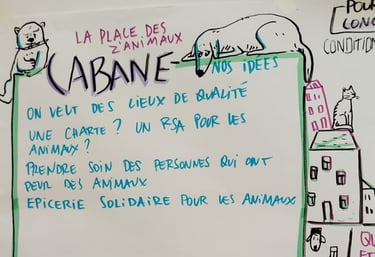 LA PLACE DES
Z'ANIMAUX
CABANE
NOS IDÉES
ON VEUT DES LIEUX DE QUALITÉ
UNE CHARTE ? UN RSA POUR LES
ANIMAUX ?
PRENDRE SOIN DES PERSONNES QUI ONT
PEUR DES ANIMAUX
EPICERIE SOLIDAIRE POUR LES ANIMAUX
POUR
CONDITION
QU
ET